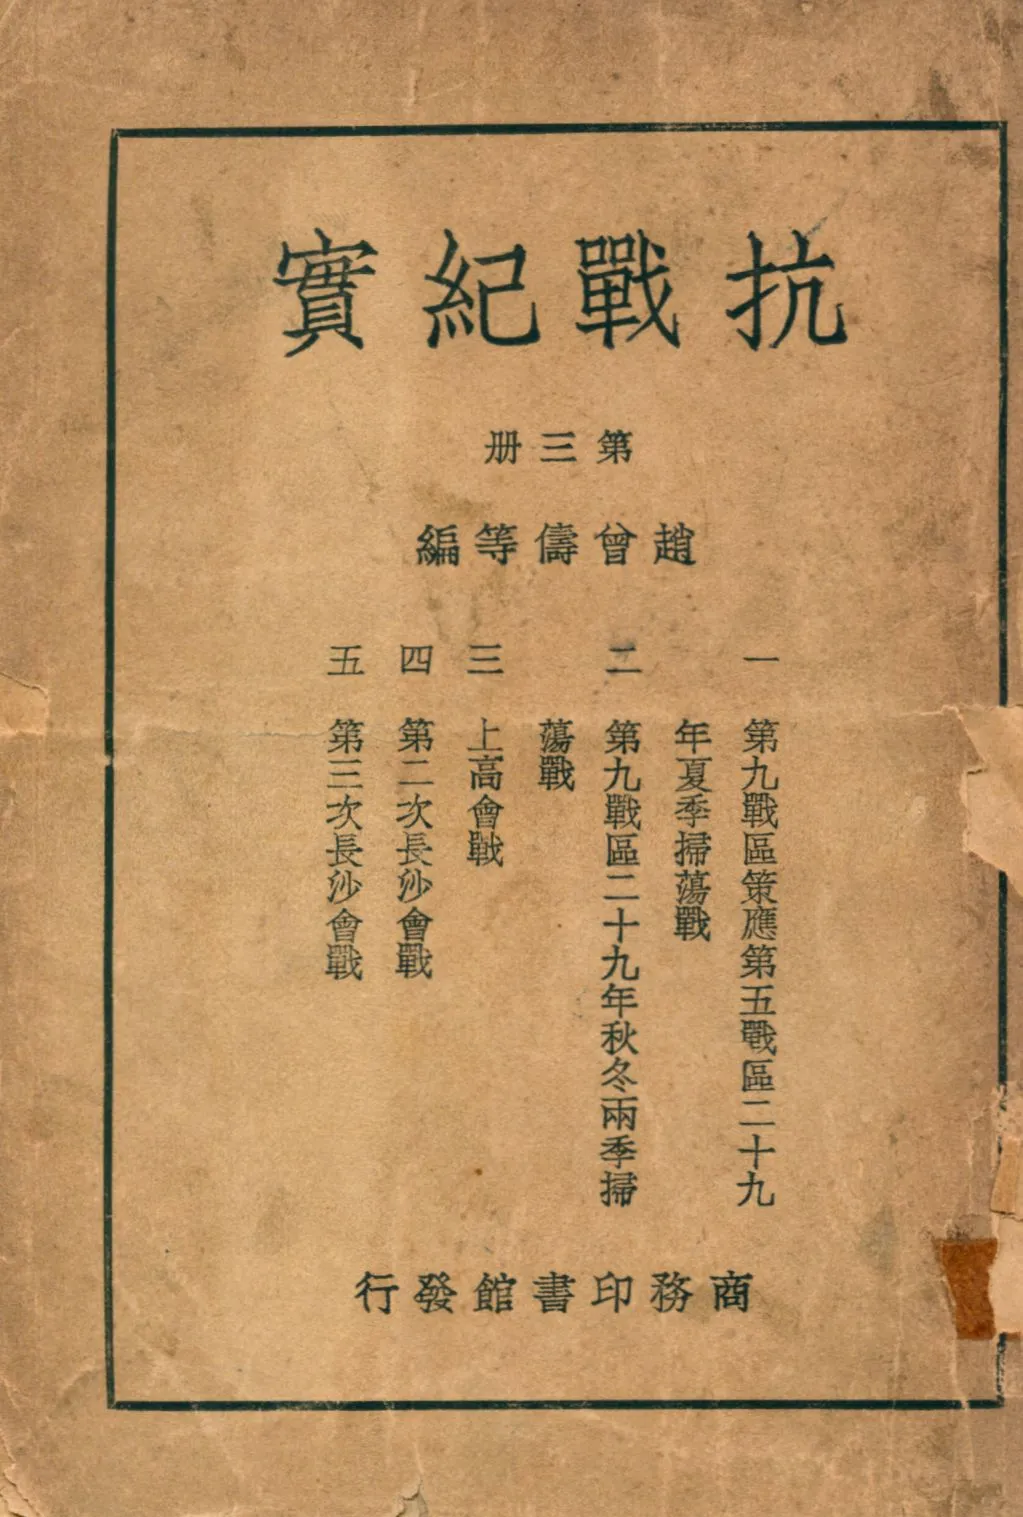 抗戰紀實
第三册
趙曾儔等編
一 第九戰區策應第五戰區二十九
年夏季掃蕩戰
二 第九戰區二十九年秋冬兩季掃
蕩戰
三 上高會戰
四 第二次長沙會戰
五 第三次長沙會戰
商務印書館發行